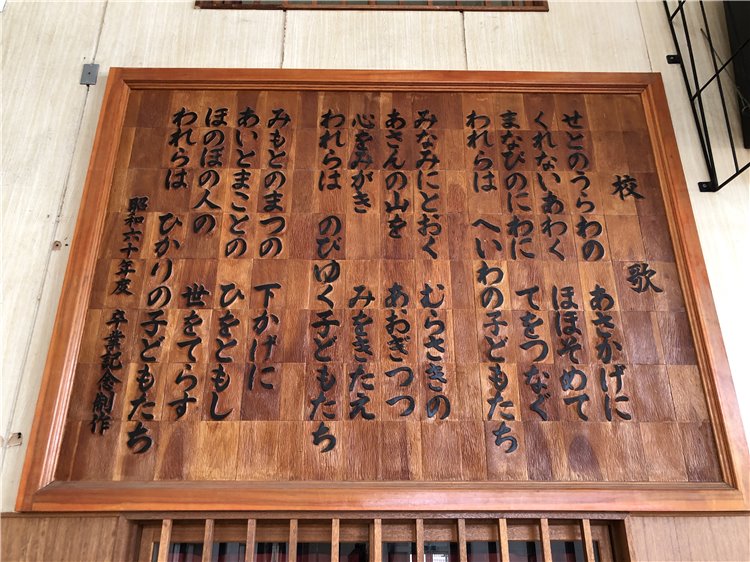 校歌
せとのうらわの　あさかげに
くれないあわく　ほほそめて
まなびのにわに　てをつなぐ
われらは　へいわの子どもたち
みなみにとおく　むらさきの
あさんの山を　あおぎつつ
心をみがき　みをきたえ
われらは　のびゆく子どもたち
みもとのまつの　下かげに
あいとまことの　ひをともし
ほのほの人の　世をてらす
われらは　ひかりの子どもたち
昭和六十年度　卒業記念制作